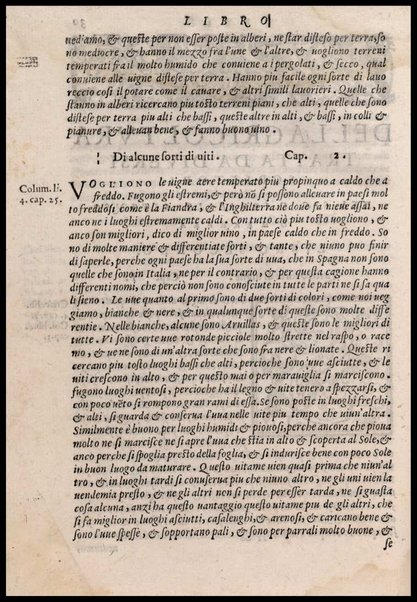 LIBRO
ned'amo, & queste per non esser poste in alberi, ne star distese per terra, so
no mediocre, & hanno il mezzo fra l'une & l'altre, & uogliono terreni
temperati fra il molto humido che conuiene a i pergolati, & secco, qual
conuiene alle uigne distese per terra. Hanno piu facile ogni sorte di lauo
reccio cosi il potare come il cauare, & altri simili lauorieri. Quelle che
stanno in alberi ricercano piu tosto terreni piani, che alti, quelle che sono
distese per terra piu alti che bassi, queste altre in alti, & bassi, in colli &
pianure, & alleuan bene, & fanno buono uino.
Di alcune sorti di uiti. Cap. 2.
Colum. li.
4. cap. 25.
VOGLIONO le uigne aere temperato piu propinquo a caldo che a
freddo. Fugono gli estremi, & però nō si possono alleuare in paesi mol
to freddosi come è la Fiandra, & l'Inghilterra ne doue fa nieue assai, ne
anco ne i luoghi estremamente caldi. Con tutto ciò piu tosto uogliono, &
anco son migliori, dico di miglior uino, in paese caldo che in freddo. So
no di molte maniere & differentiate sorti, & tante, che niuno puo finir
di saperle, perche ogni paese ha la sua sorte di uua, che in Spagna non sono
quelle che sono in Italia, ne per il contrario, & per questa cagione hanno
differenti nomi, che perciò non sono conosciute in tutte le parti ne si sa qua
li sieno. Le uue quanto al primo sono di due sorti di colori, come noi ueg
giamo, bianche & nere, & in qualunque sorte di queste sono molte diffe
rentie. Nelle bianche, alcune sono Aruillas, & queste sono le migliori di
tutte. Vi sono certe uue rotonde picciole molto strette nel raspo, o race
mo, & ue ne sono di un'altra sorte che sono fra nere & lionate. Queste ri
cercano piu tosto luoghi bassi che alti, percioche sono uue asciutte, & le
uiti crescono in alto, & per questo mai o per marauiglia si marciscono.
fugono luoghi uentosi, percioche ha il legno & uite tenero a spezzarsi, &
con poco uēto si rompono gran rami di essa. Se sono poste in luoghi freschi,
& alti, si guarda & conserua l'uua nelle uite piu tempo che niun'altra.
Similmente è buono per luoghi humidi & piouosi, perche ancora che pioua
molto ne si marcisce ne si apre l'uua che stia in alto & scoperta al Sole, &
anco perche si spoglia presto della foglia, & si indurisce bene con poco Sole
in buon luogo da maturare. Questo uitame uien quasi prima che niun'al
tro, & in luoghi tardi si conserua piu che niuno altro, ne gli uni uien la
uendemia presto, & ne gli altri non si perde per esser tarda, ne si guasta
cosa alcuna, anzi ha questo uantaggio questo uitame piu de gli altri, che
si fa miglior in luoghi asciutti, casalenghi, & arenosi, & caricano bene &
sono l'uue spesse, & sopportano pali, & sono per parrali molto buone, &
se